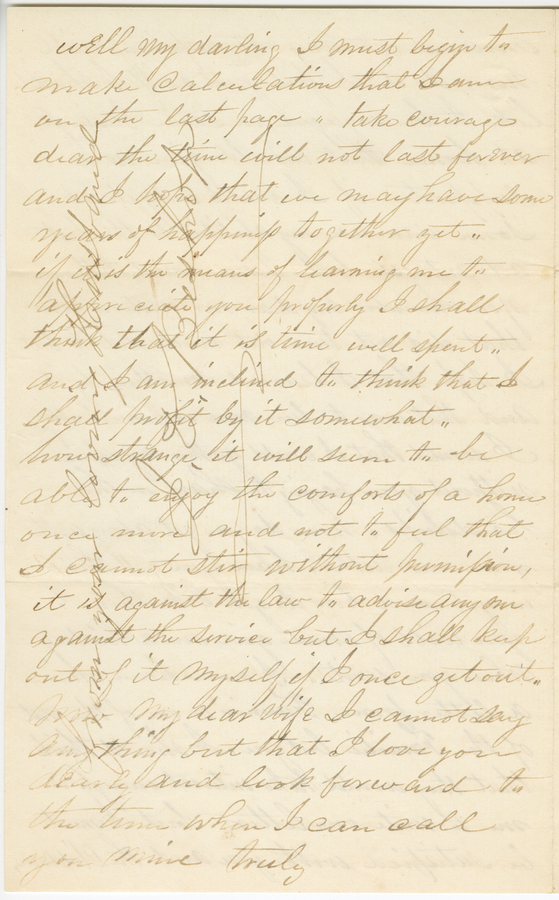 well my darling I must begin to
make calculations that I am
on the last page " take courage
dear the time will not last forever
and I hope that we may have some
years of happiness together yet "
if it is the means of learning me to
appreciate you properly I shall
think that it is time well spent "
and I am inclined to think that I
shall profit by it somewhat "
how strange it will seem to be
able to enjoy the comforts of a home
once more and not to feel that
I cannot stir without permission,
it is against the law to advise anyone
against the service but I shall keep
out of it myself if I once get out "
Now my dear wife I cannot say
anything but that I love you
dearly and look forward to
the time when I can call
you mine truly
from your devoted husband